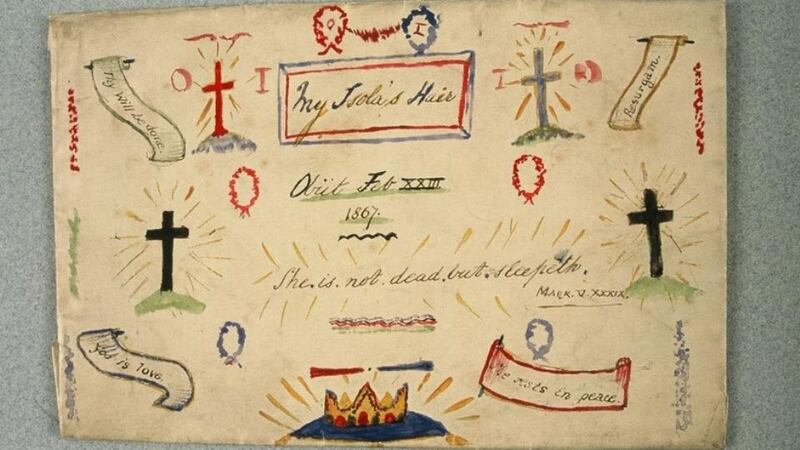 O I
O I I O
Thy will be done.
My Isola's Hair
Resurgam.
Obiit Feb XXIII
1867.
She. is. not. dead. but. sleepeth.
MARK. V. XXXIX.
God is love
He rests in peace.